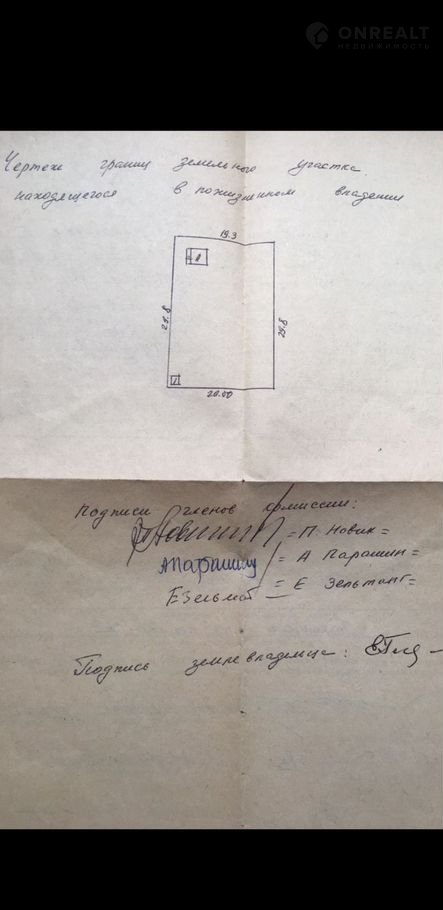 ONREALT
НЕДВИЖИМОСТЬ
Чертеж границ земельного участка
находящегося в пожизненном владении
19.3
29.8
29.8
20.00
Подписи членов комиссии:
= П. Новик =
АПарашин = А Парашин =
ЕЗельман = Е Зельманг=
Подпись землевладельца: